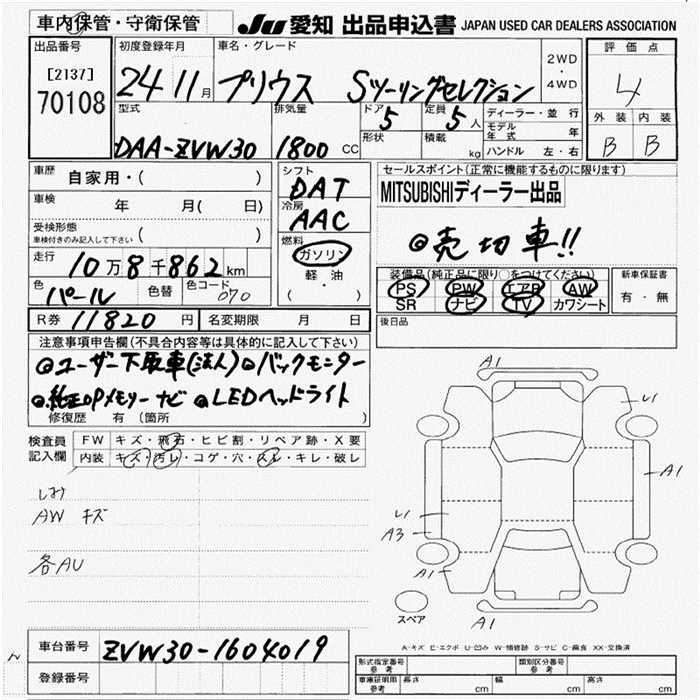 車内保管・守衛保管
JU 愛知 出品申込書 JAPAN USED CAR DEALERS ASSOCIATION
出品番号
[2137]
70108
初度登録年月
24 11月
車名・グレード
プリウス Sツーリングセレクション
2WD
・
4WD
評価点
4
外装 内装
B B
型式
DAA-ZVW30
排気量
1800 CC
ドア
5
形状
定員
5人
積載
kg
ディーラー・並行
モデル年式 年
ハンドル 左・右
車歴 自家用・( )
車検 年 月( 日)
受検形態
車検付きのみ記入して下さい ( )
走行 10万8千862km
色 パール 色替 色コード 070
シフト
DAT
冷房
AAC
燃料
ガソリン
軽油
( ・ )
セールスポイント(正常に機能するものに限ります)
MITSUBISHIディーラー出品
◎売切車!!
装備品(純正品に限り○をつけてください)
PS PW エアB AW
SR ナビ TV カワシート
新車保証書
有・無
後日品
R券 11820円 名変期限 月 日
注意事項申告欄(不具合内容等は具体的に記入して下さい)
◎ユーザー下取車(法人)◎バックモニター
◎純正OPメモリーナビ ◎LEDヘッドライト
修復歴 有(箇所 )
検査員
記入欄
FW キズ・飛石・ヒビ割・リペア跡・X要
内装 キズ・汚レ・コゲ・穴・スレ・キレ・破レ
しみ
AW キズ
各AU
A1
U1
A1
U1
A3
A1
A1
スペア
A-キズ E-エクボ U-凹み W-補修跡 S-サビ C-腐食 XX-交換済
車台番号 ZVW30-1604019
登録番号
型式指定番号
参考
類別区分番号
参考
車庫証明用
参考
長さ cm 幅 cm 高さ cm